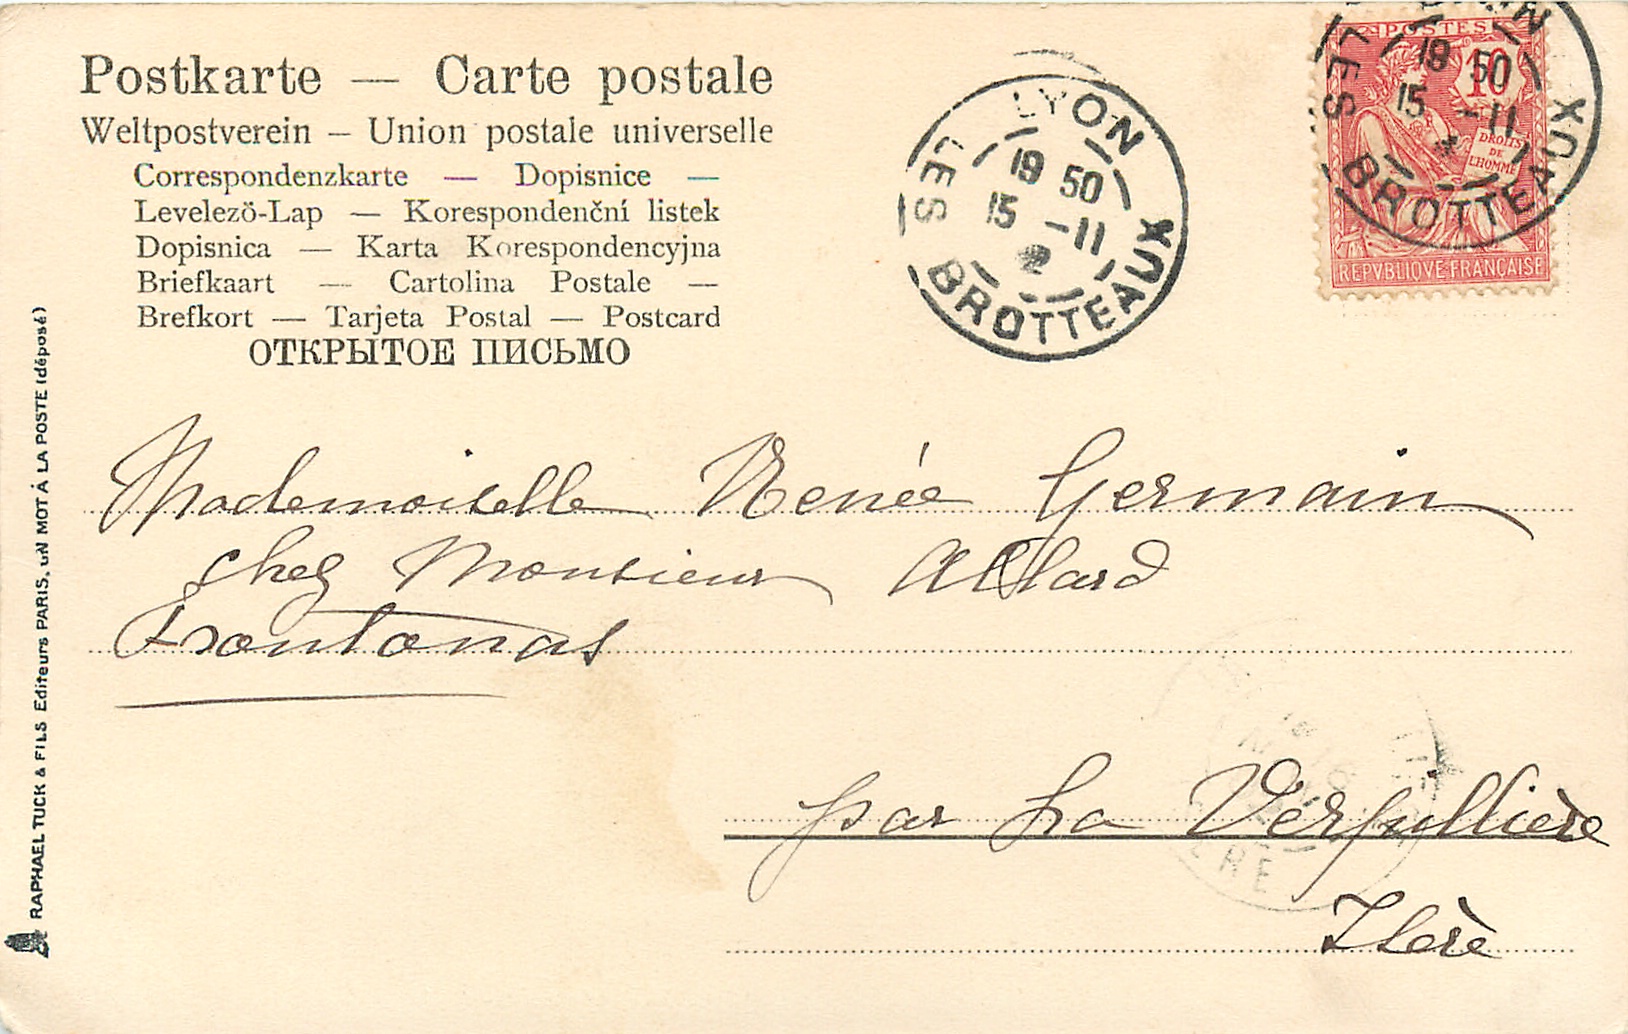 Postkarte — Carte postale
Weltpostverein – Union postale universelle
Correspondenzkarte — Dopisnice —
Levelezö-Lap — Korespondenční listek
Dopisnica — Karta Korespondencyjna
Briefkaart — Cartolina Postale —
Brefkort — Tarjeta Postal — Postcard
ОТКРЫТОЕ ПИСЬМО
LYON
LES BROTTEAUX
19 50
15 -11
POSTES
10
DROITS
DE
L'HOMME
REPVBLIQVE FRANÇAISE
19 50
15 -11
LES BROTTEAUX
Mademoiselle Renée Germain
chez Monsieur Allard
Frontonas
par La Verpillière
Isère
ISERE
RAPHAEL TUCK & FILS Editeurs PARIS. UN MOT À LA POSTE (déposé)